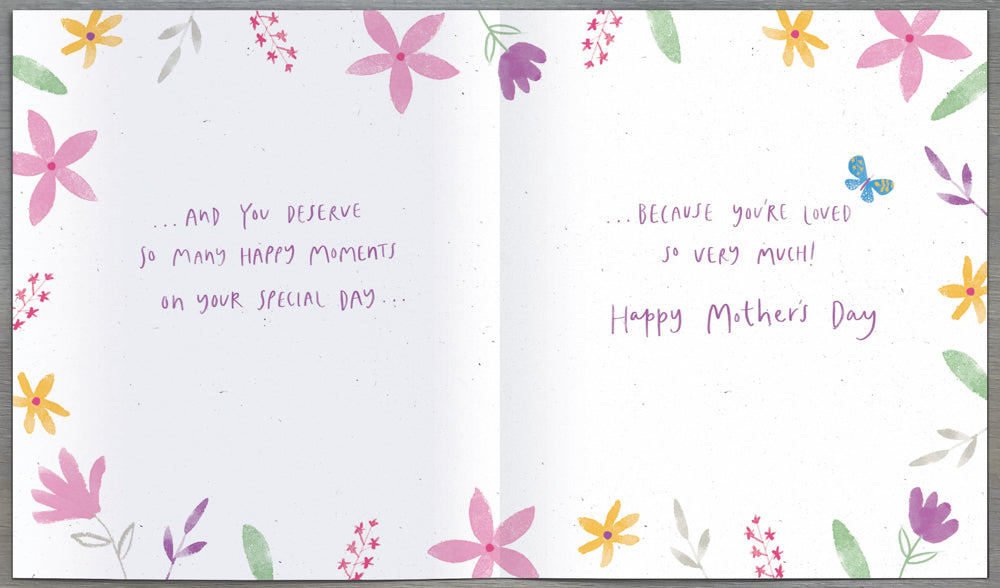 ...AND YOU DESERVE
SO MANY HAPPY MOMENTS
ON YOUR SPECIAL DAY...
...BECAUSE YOU'RE LOVED
SO VERY MUCH!
Happy Mother's Day